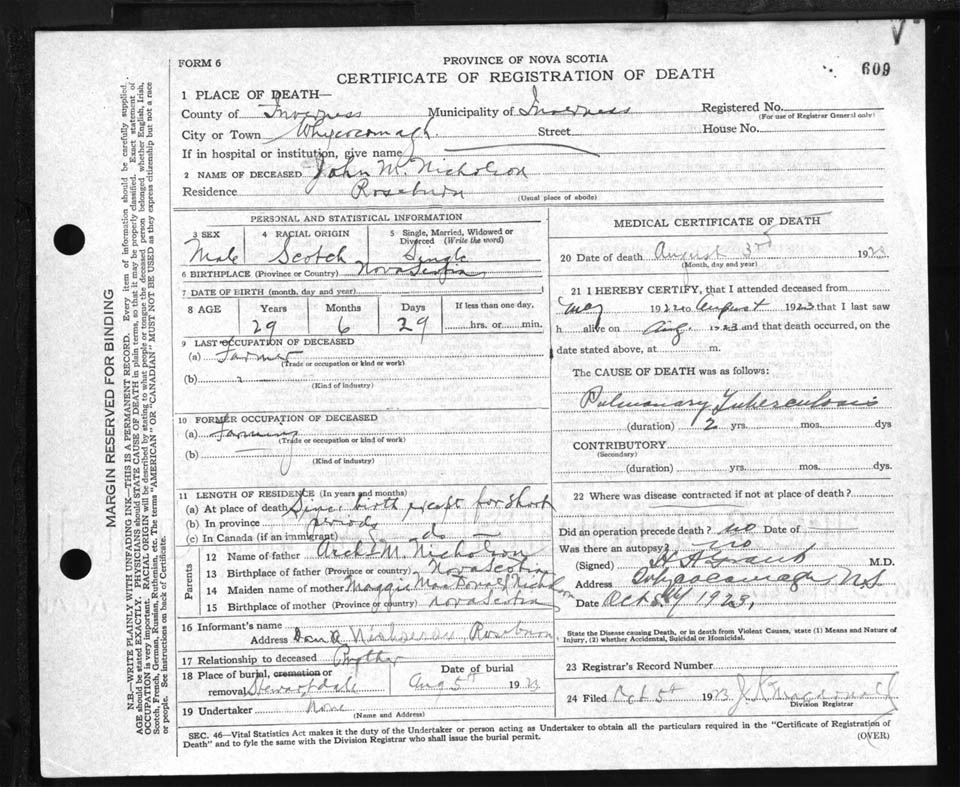 FORM 6
PROVINCE OF NOVA SCOTIA
CERTIFICATE OF REGISTRATION OF DEATH
609
1 PLACE OF DEATH—
County of Inverness Municipality of Inverness Registered No.
(For use of Registrar General only)
City or Town Whycocomagh Street House No.
If in hospital or institution, give name
2 NAME OF DECEASED John M. Nicholson
Residence Roseburn
(Usual place of abode)
PERSONAL AND STATISTICAL INFORMATION
3 SEX 4 RACIAL ORIGIN 5 Single, Married, Widowed or Divorced (Write the word)
Male Scotch Single
6 BIRTHPLACE (Province or Country) Nova Scotia
7 DATE OF BIRTH (month, day and year)
8 AGE Years Months Days If less than one day,
29 6 29 hrs. or min.
9 LAST OCCUPATION OF DECEASED
(a) Farmer
(Trade or occupation or kind or work)
(b)
(Kind of industry)
10 FORMER OCCUPATION OF DECEASED
(a) Farming
(Trade or occupation or kind of work)
(b)
(Kind of industry)
11 LENGTH OF RESIDENCE (In years and months)
(a) At place of death Since birth except for short
(b) In province periods
(c) In Canada (if an immigrant) do
Parents
12 Name of father Arch M. Nicholson
13 Birthplace of father (Province or country) Nova Scotia
14 Maiden name of mother Maggie MacDonald Nicholson
15 Birthplace of mother (Province or country) Nova Scotia
16 Informant's name
Address Dan Nicholson Roseburn
17 Relationship to deceased Brother
18 Place of burial, cremation or removal Stewartdale
Date of burial Aug 5th 1923
19 Undertaker None
(Name and Address)
MEDICAL CERTIFICATE OF DEATH
20 Date of death August 3rd 1923
(Month, day and year)
21 I HEREBY CERTIFY, that I attended deceased from
May 1922 to August 1923 that I last saw
h alive on Aug. 1923 and that death occurred, on the
date stated above, at m.
The CAUSE OF DEATH was as follows:
Pulmonary Tuberculosis
(duration) 2 yrs. mos. dys
CONTRIBUTORY
(Secondary)
(duration) yrs. mos. dys.
22 Where was disease contracted if not at place of death?
Did an operation precede death? no Date of
Was there an autopsy? no
(Signed) M.D.
Address Whycocomagh N.S
Date Oct 1923,
State the Disease causing Death, or in death from Violent Causes, state (1) Means and Nature of
Injury, (2) whether Accidental, Suicidal or Homicidal.
23 Registrar's Record Number
24 Filed Oct 5th 1923 J. K. Macdonald
Division Registrar
SEC. 46—Vital Statistics Act makes it the duty of the Undertaker or person acting as Undertaker to obtain all the particulars required in the "Certificate of Registration of
Death" and to fyle the same with the Division Registrar who shall issue the burial permit.
(OVER)
MARGIN RESERVED FOR BINDING
N.B.—WRITE PLAINLY WITH UNFADING INK—THIS IS A PERMANENT RECORD. Every item of information should be carefully supplied.
AGE should be stated EXACTLY. PHYSICIANS should STATE CAUSE OF DEATH in plain terms, so that it may be properly classified. Exact statement of
OCCUPATION is very important. RACIAL ORIGIN will be described by stating to what people or tongue the deceased person belonged whether English, Irish,
Scotch, French, German, Russian, Ruthenian, etc. The terms "AMERICAN" OR "CANADIAN" MUST NOT BE USED as they express citizenship but not a race
or people. See instructions on back of Certificate.